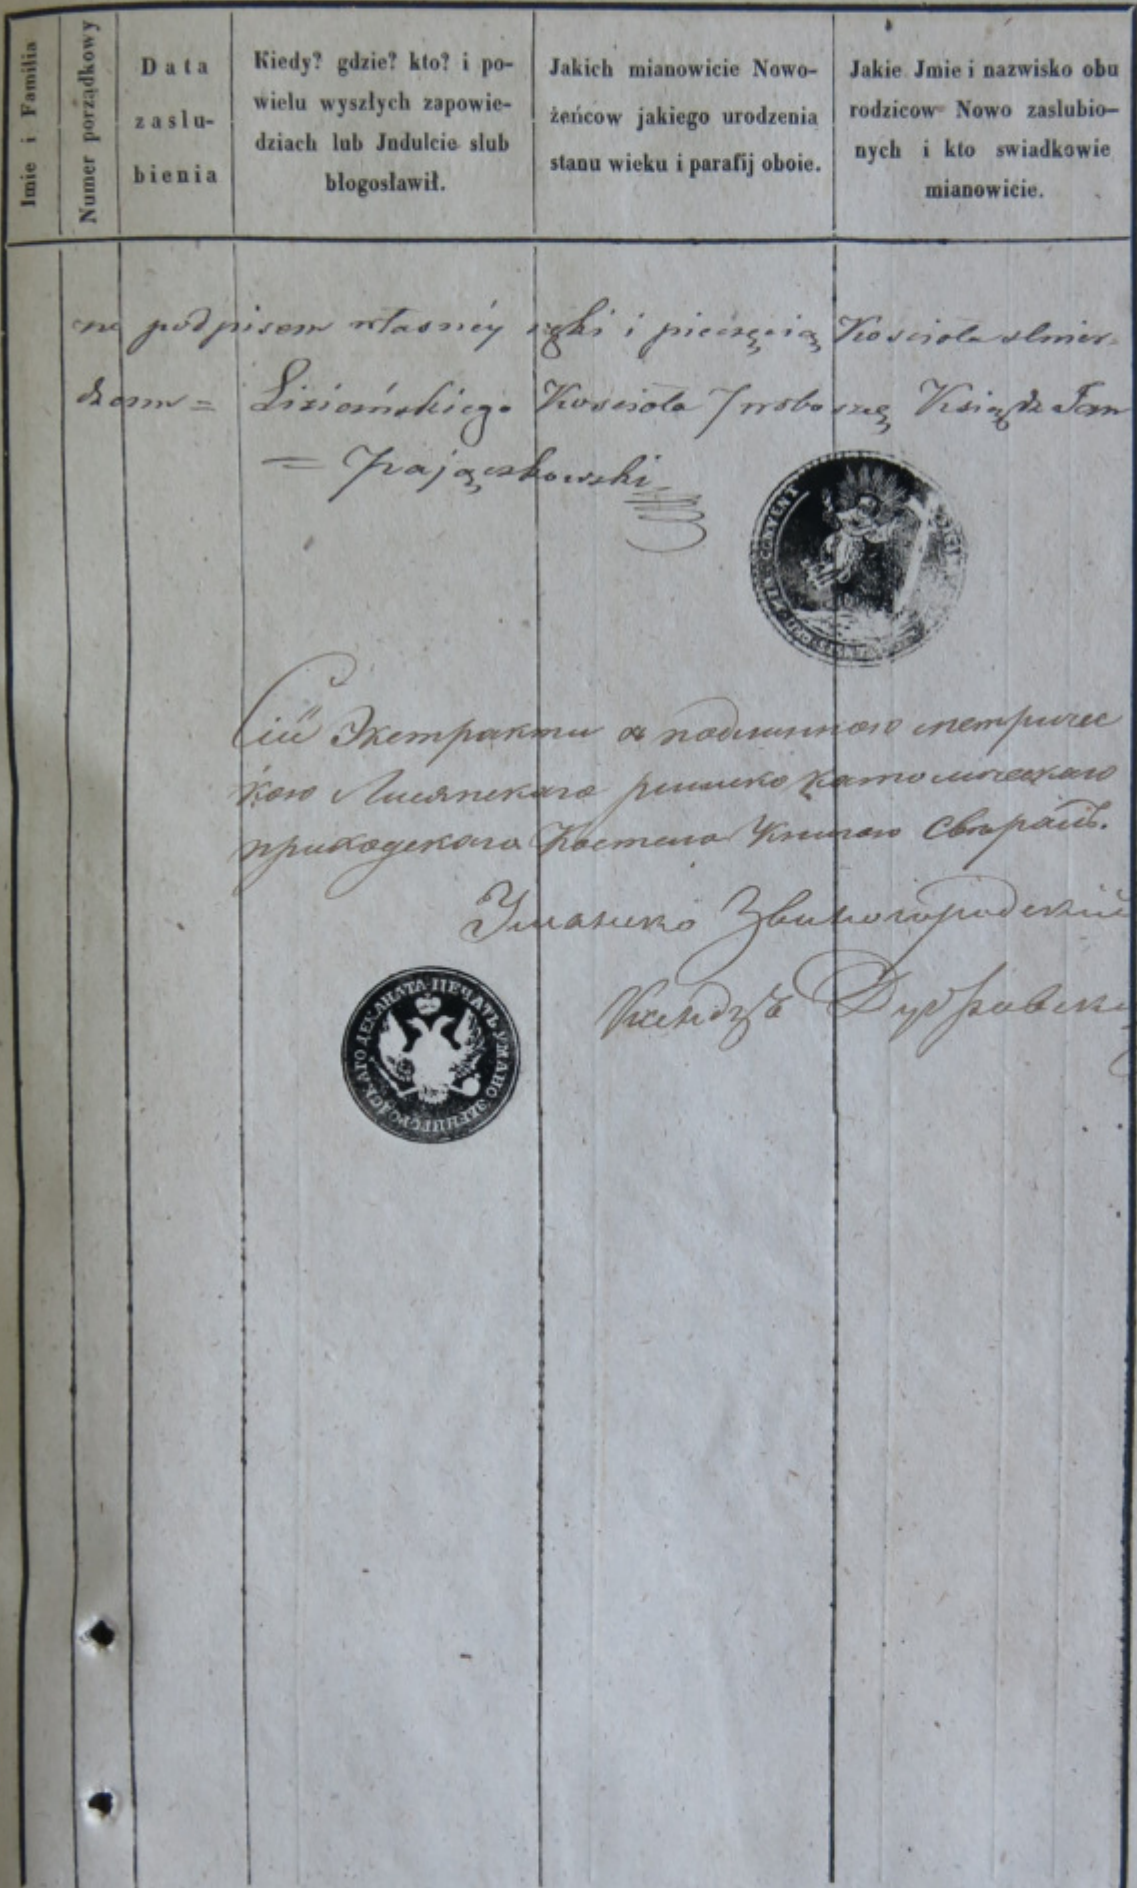 Imie i Familia
Numer porządkowy
Data
zaslu-
bienia
Kiedy? gdzie? kto? i po-
wielu wyszłych zapowie-
dziach lub Jndulcie slub
błogosławił.
Jakich mianowicie Nowo-
żeńcow jakiego urodzenia
stanu wieku i parafij oboie.
Jakie Jmie i nazwisko obu
rodzicow Nowo zaslubio-
nych i kto swiadkowie
mianowicie.
podpisem własnéy ręki i pieczęcią Kosciola stwier-
dzam = Lisiańskiego Kosciola Ksiądz Jan
= Zajączkowski
CONVENT
Сій Экстрактъ съ подлинною метричес
кою Лисянскаго римско католическаго
приходскаго Костела Книгою сверялъ.
Уманско Звиногородский
Ксендзъ Дубровск
ПЕЧАТЬ УМАНО ЗВЕНИГОРОДСКАГО ДЕКАНАТА